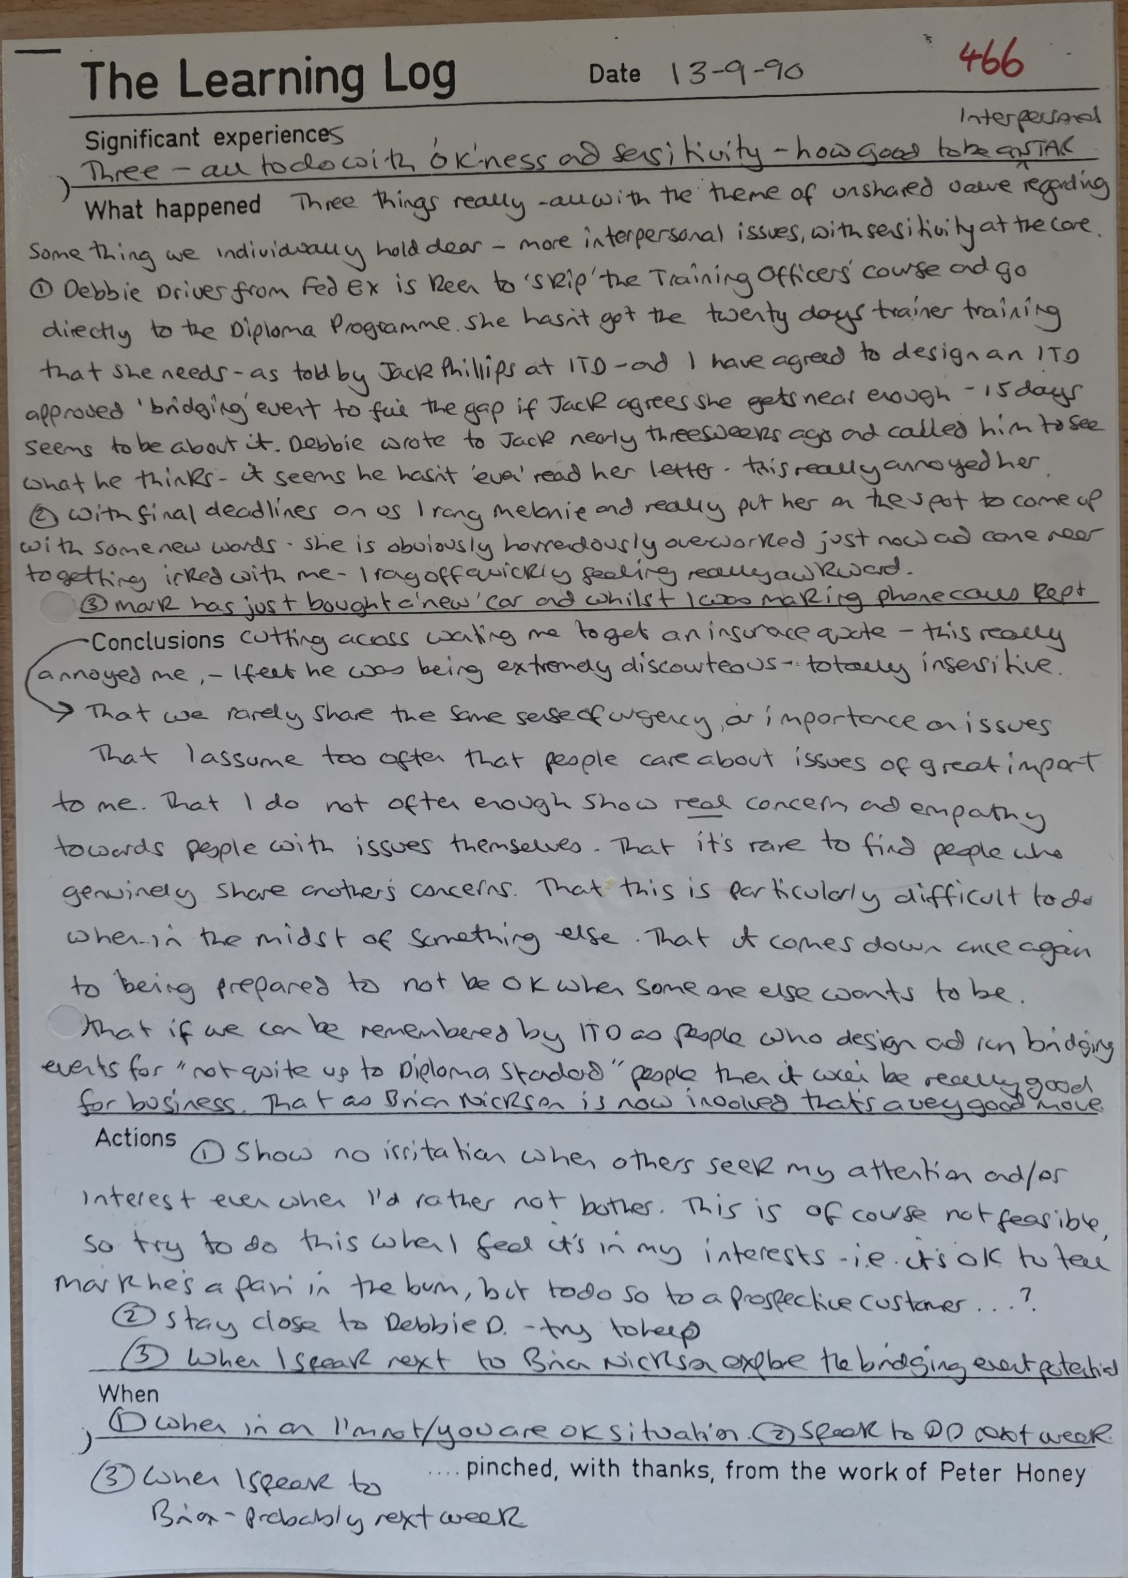 The Learning Log Date 13-9-90 466
Significant experiences Interpersonal
Three - all to do with 'OK'ness and sensitivity - how good to be an STAR
What happened Three things really - all with the theme of unshared value regarding
something we individually hold dear - more interpersonal issues, with sensitivity at the core.
① Debbie Driver from Fed Ex is keen to 'skip' the Training Officers' course and go
directly to the Diploma Programme. She hasn't got the twenty days trainer training
that she needs - as told by Jack Phillips at ITD - and I have agreed to design an ITD
approved 'bridging' event to fill the gap if Jack agrees she gets near enough - 15 days
seems to be about it. Debbie wrote to Jack nearly three weeks ago and called him to see
what he thinks - it seems he hasn't 'even' read her letter - this really annoyed her.
② With final deadlines on us I rang Melanie and really put her on the spot to come up
with some new words - she is obviously horrendously overworked just now and came near
to getting irked with me - I rang off quickly feeling really awkward.
③ Mark has just bought a 'new' car and whilst I was making phone calls kept
Conclusions cutting across wanting me to get an insurance quote - this really
annoyed me, - I feel he was being extremely discourteous - totally insensitive.
→ That we rarely share the same sense of urgency, or importance on issues
That I assume too often that people care about issues of great import
to me. That I do not often enough show real concern and empathy
towards people with issues themselves. That it's rare to find people who
genuinely share another's concerns. That this is particularly difficult to do
when in the midst of something else. That it comes down once again
to being prepared to not be OK when someone else wants to be.
That if we can be remembered by ITD as people who design and run bridging
events for "not quite up to Diploma Standard" people then it will be really good
for business. That as Brian Nickson is now involved that's a very good move
Actions ① Show no irritation when others seek my attention and/or
interest even when I'd rather not bother. This is of course not feasible,
so try to do this when I feel it's in my interests - i.e. it's OK to tell
Mark he's a pain in the bum, but to do so to a prospective customer ...?
② Stay close to Debbie D. - try to help
③ When I speak next to Brian Nickson explore the bridging event potential
When
① When in an I'm not/you are OK situation. ② Speak to DD next week
③ When I speak to .... pinched, with thanks, from the work of Peter Honey
Brian - probably next week